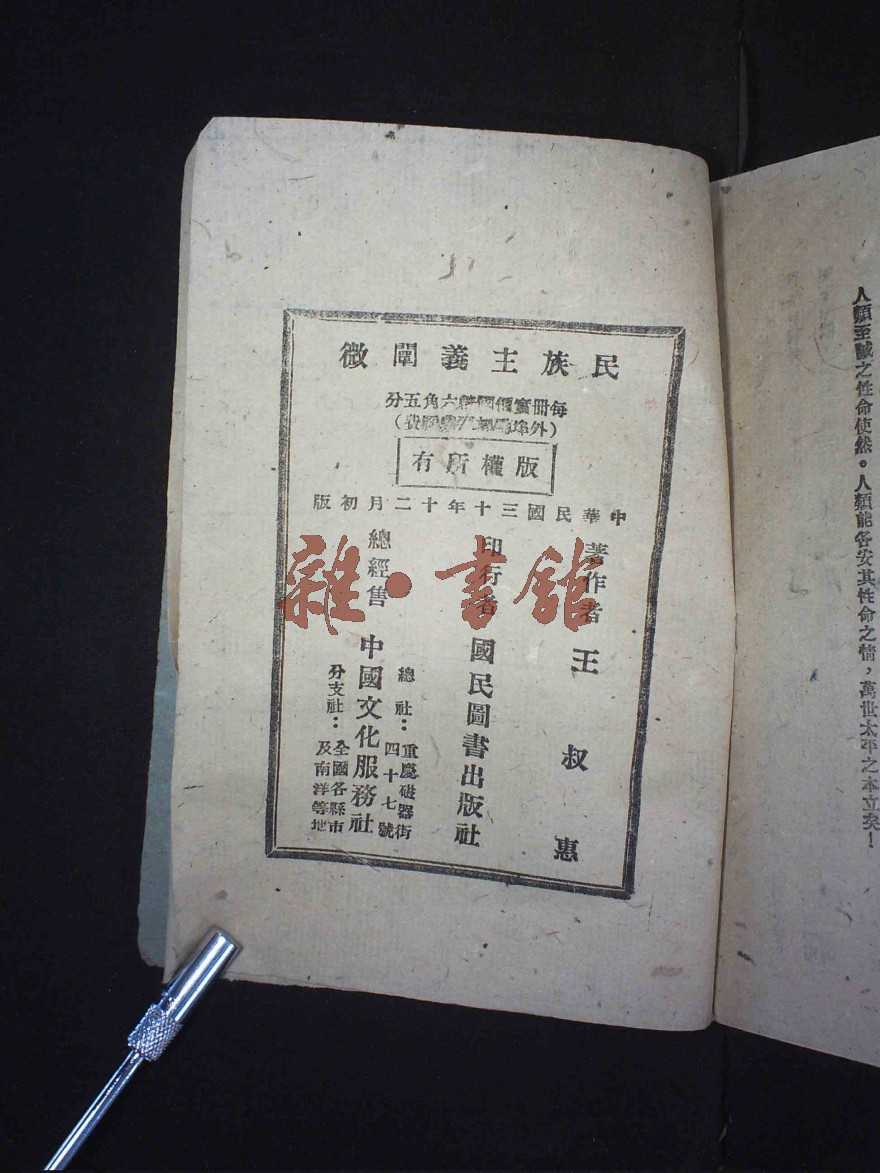 民族主義闡微
每冊實價國幣六角五分
版權所有
中華民國三十年十二月初版
著作者 王叔惠
印行者 國民圖書出版社
總經售 中國文化服務社
總社：重慶磁器街四十七號
分支社：全國各縣市及南洋等地
人類至誠之性命使然。人類能各安其性命之情，萬世太平之本立矣！
雜·書館